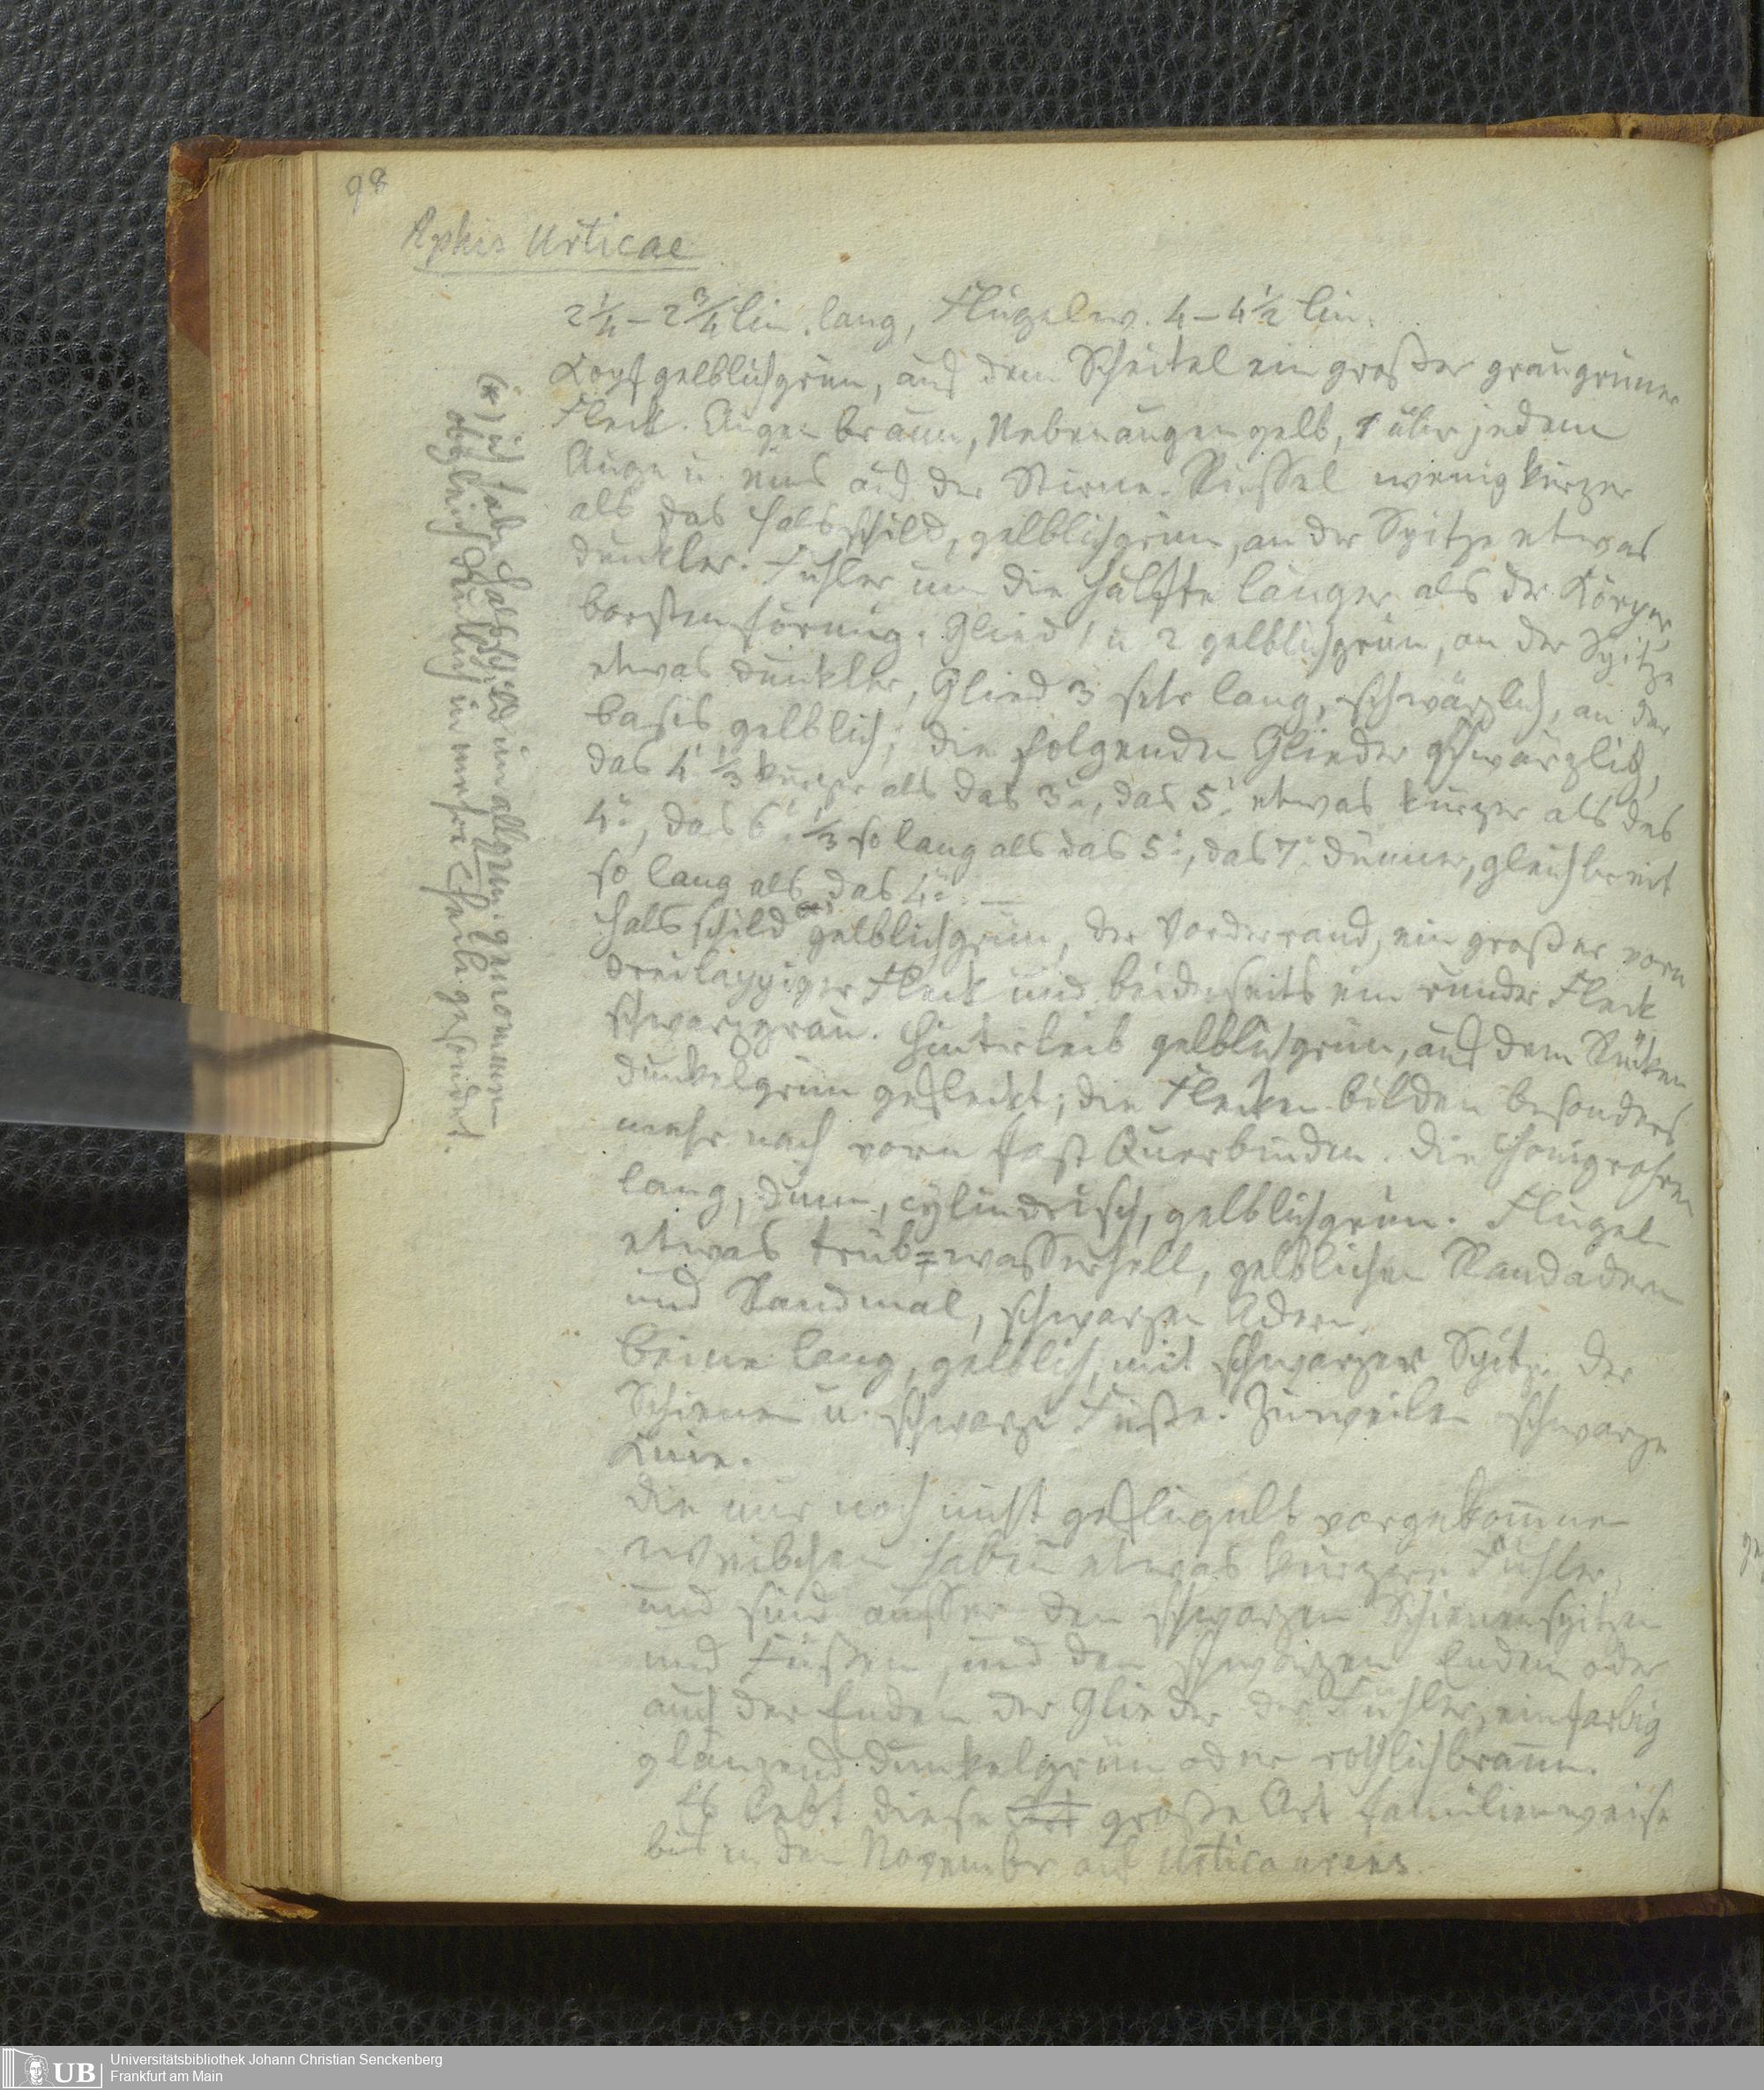 98
Aphis Urticae
2 1/4 – 2 3/4 lin. lang, Flügelw. 4 – 4 1/2 lin.
Kopf gelblichgrün, auf dem Scheitel ein großer graugrüner
Fleck. Augen braun, Nebenaugen gelb, 1 über jedem
Auge u. eins auf der Stirne. Rüssel wenig kürzer
als das Halsschild, gelblichgrün, an der Spitze etwas
dunkler. Fühler um die Hälfte länger als der Körper,
borstenförmig. Glied 1 u 2 gelblichgrün, an der Spitze
etwas dunkler, Glied 3 sehr lang, schwärzlich, an der
basis gelblich; die folgenden Glieder schwärzlich,
das 4t 1/3 kürzer als das 3te, das 5t etwas kürzer als das
4te, das 6t 1/3 so lang als das 5te, das 7t dünner, gleichbreit
so lang als das 4te. —
Halsschild (*) gelblichgrün, der Vorderrand, ein großer vorn
dreilappiger Fleck und beiderseits ein runder Fleck
schwarzgrau. Hinterleib gelblichgrün, auf dem Rücken
dunkelgrün gefleckt; die Flecken bilden besonders
mehr nach vorn fast Querbinden. Die Honigröhren
lang, dünn, cylindrisch, gelblichgrün. Flügel
etwas trüb=wasserhell, gelblichen Randadern
und Randmal, schwarzen Adern.
Beine lang, gelblich, mit schwarzer Spitze der
Schienen u. schwarze Füße. Zuweilen schwarze
Knie.
Die mir noch nicht geflügelt vorgekommenen
Weibchen haben etwas kürzere Fühler,
und sind ausser den schwarzen Schienenspitzen
und Füßen, und den schwarzen Enden oder
auch der Enden der Glieder der Fühler, einfarbig
glänzend dunkelgrün oder röthlichbraun.
Es lebt diese Art große Art familienweise
bis in den November auf Urtica urens.
(*) ich habe Halsschild im allgem. genommen
obgleich deutlich in mehre Theile gesondert.
Universitätsbibliothek Johann Christian Senckenberg
Frankfurt am Main
UB